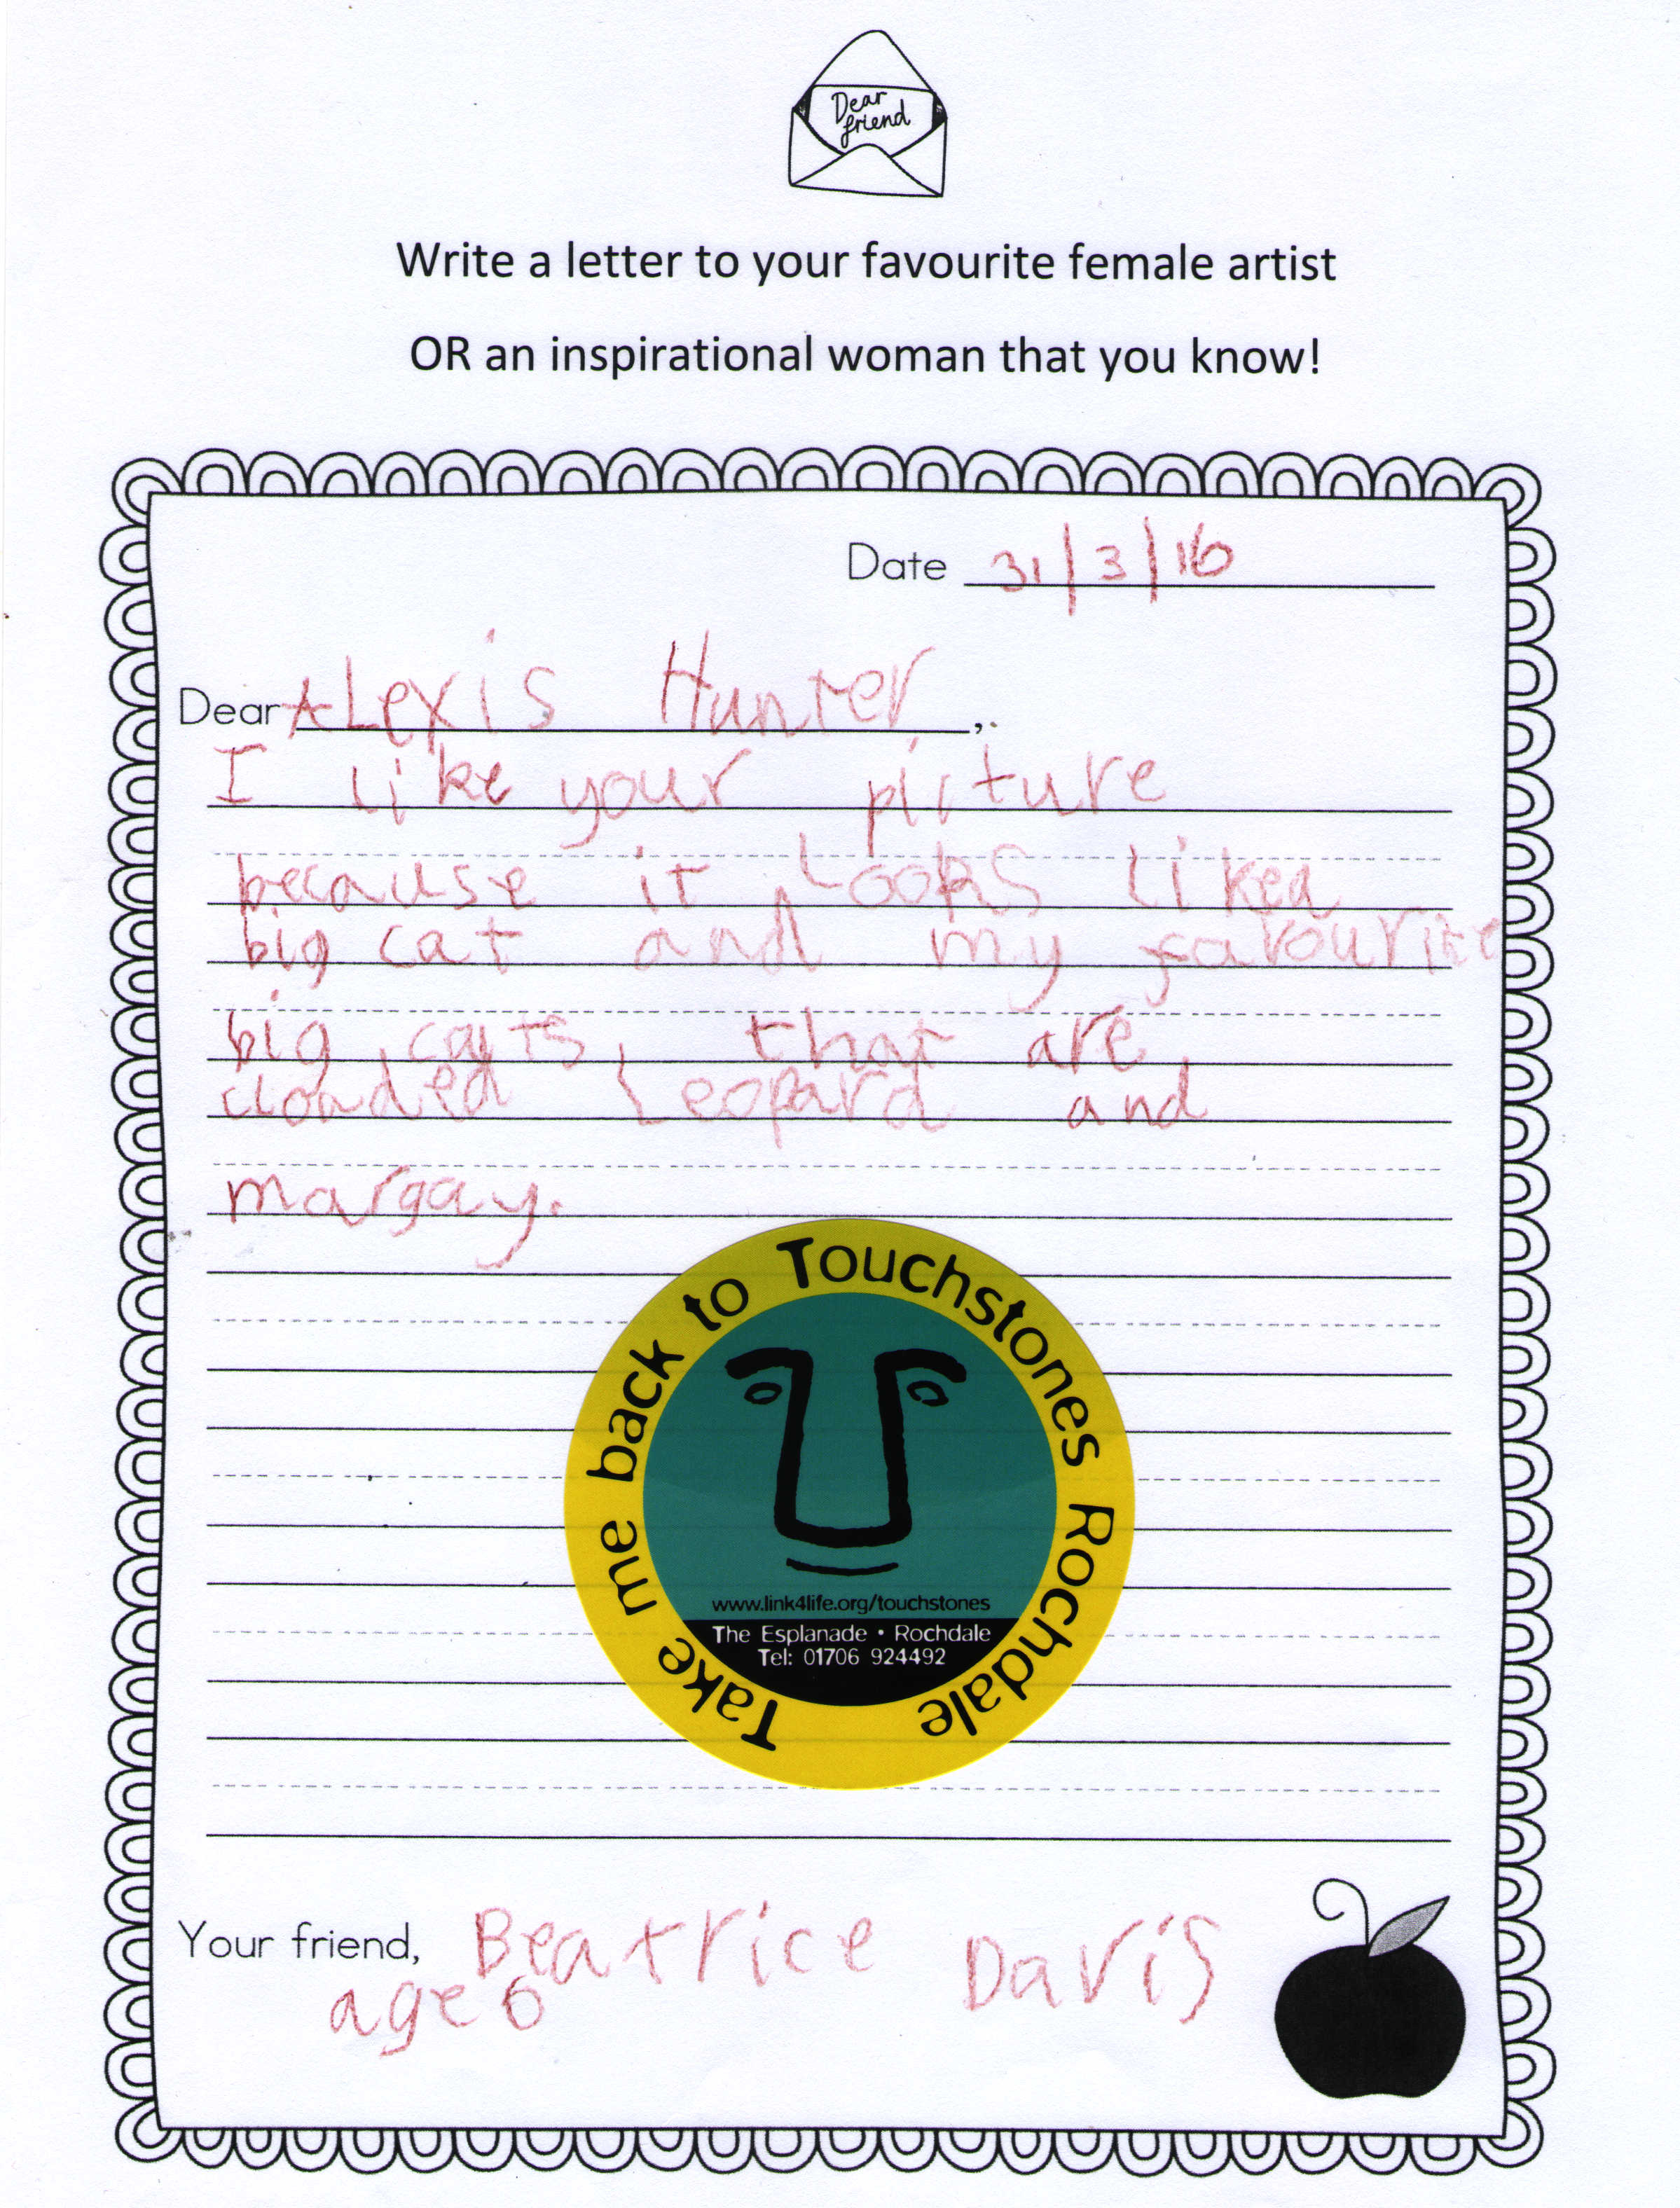 Dear
friend
Write a letter to your favourite female artist
OR an inspirational woman that you know!
Date 31/3/16
Dear ALexis Hunter,
I like your picture
because it Looks Likea
big cat and my favourite
big cats that are
clouded Leopard and
margay.
Take me back to Touchstones Rochdale
www.link4life.org/touchstones
The Esplanade • Rochdale
Tel: 01706 924492
Your friend, Beatrice Davis
age 6